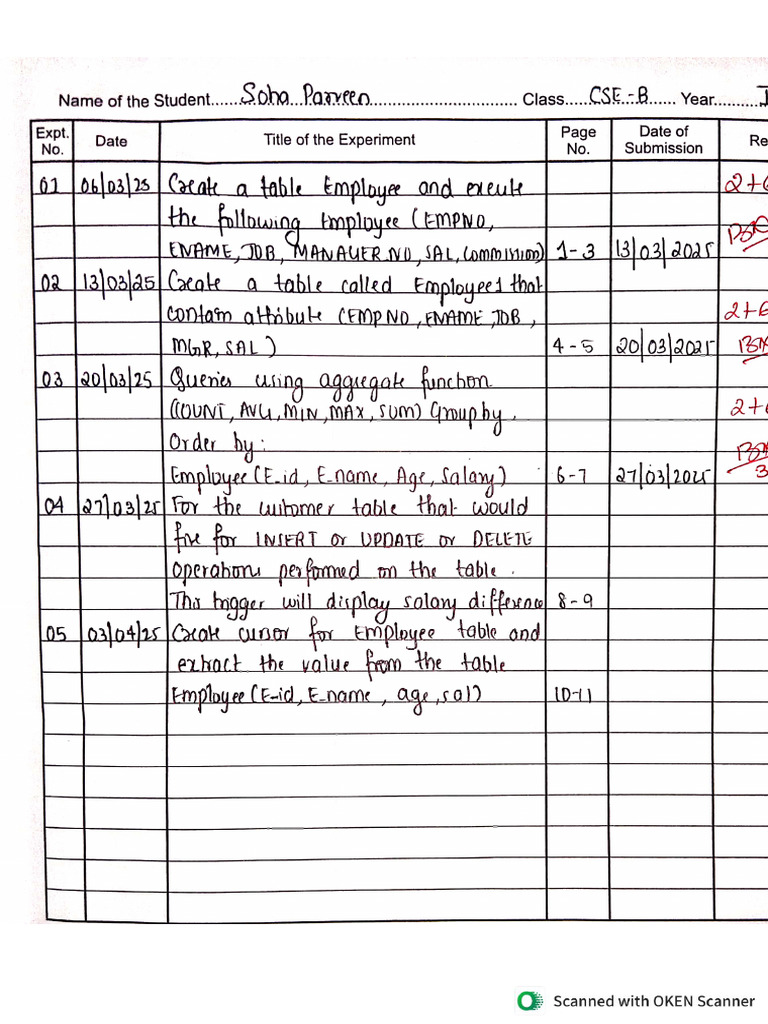 Name of the Student......Soha Parveen.................................. Class.....CSE-B...... Year..........I
Expt. No. Date Title of the Experiment Page No. Date of Submission Re
01 06/03/25 Create a table Employee and exeute 2+6
the following Employee (EMPNO,
ENAME, JOB, MANAGER NO, SAL, Commission) 1-3 13/03/2025
02 13/03/25 Create a table called Employee1 that
contain attribute (EMPNO, ENAME, JOB, 2+6
MGR, SAL) 4-5 20/03/2025
03 20/03/25 Queries using aggregate function
(COUNT, AVG, MIN, MAX, SUM) Group by, 2+6
Order by:
Employee (E_id, E_name, Age, Salary) 6-7 27/03/2025 3
04 27/03/25 For the customer table that would
fire for INSERT or UPDATE or DELETE
operations performed on the table.
This trigger will display salary difference 8-9
05 03/04/25 Create cursor for Employee table and
extract the value from the table
Employee (E_id, E_name, age, sal) 10-11
Scanned with OKEN Scanner